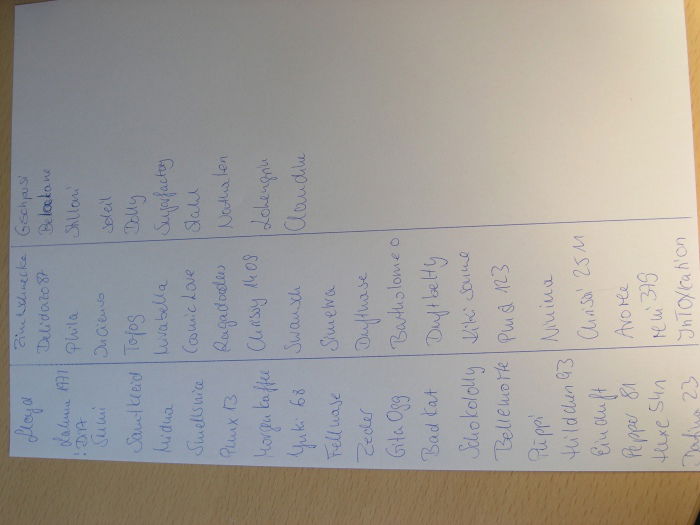 Lloyd
Lahme 1971
:DIA
Sumi
Samtkleid
Midna
Smellsnice
Pinux 13
Morgenkaffee
Yuki 68
Fellnase
Zeder
GitaOgg
Bad Kat
Schokodolly
Bellemorte
Pippi
Hildchen 93
Einduft
Pepper 81
Hexe Sun
Zimtschnecke
Dalidazo87
Phila
Incienso
Topog
Mirabella
CosmicLove
Ragadoodles
Chrissy 1409
Swansch
Sinetra
Duftnase
Bartholomeo
Duftbetty
Kiki Sanne
Pind 123
Ninina
Chrissi 2511
Avoree
Meli 379
InTOXication
Geschpusi
Belookane
Shiloni
soleil
Dolly
Sniffactory
Stahl
Nathalen
Lohengrin
Claudine